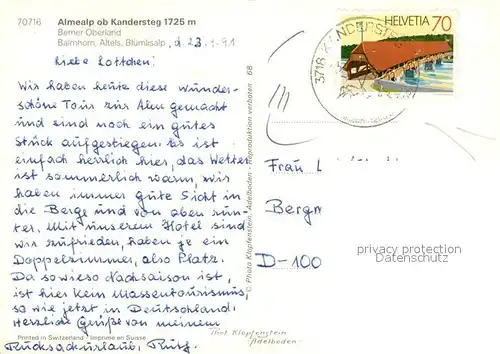 70716
Almealp ob Kandersteg 1725 m
Berner Oberland
Balmhorn, Altels, Blümlisalp, d. 23.9.91
Liebe Lottchen!
Wir haben heute diese wunder-
schöne Tour zur Alm gemacht
und sind noch ein gutes
Stück aufgestiegen. Es ist
einfach herrlich hier, das Wetter
ist sommerlich warm, wir
haben immer gute Sicht in
die Berge und von oben run-
ter. Mit unserem Hotel sind
wir zufrieden, haben je ein
Doppelzimmer, also Platz.
Da sowieso Nachsaison ist,
ist hier kein Massentourismus,
so wie jetzt in Deutschland.
Herzliche Grüße von meinem
Rucksackurlaub,
Printed in Switzerland - Imprimé en Suisse
© Photo Klopfenstein, Adelboden - Reproduktion verboten 68
HELVETIA 70
3718 KANDERSTEG
Frau L
Bergm
D-100
privacy protection
Datenschutz
Phot Klopfenstein
Adelboden